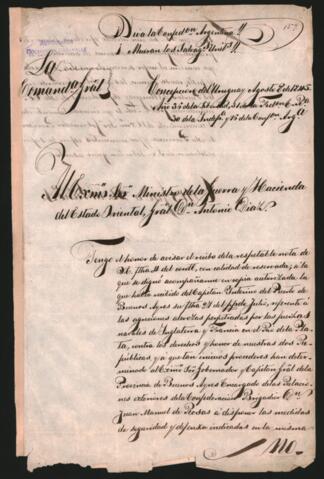 Viva la Confedn. Argentina!!
Mueran los Salvag.s Unit.s!!
157
La
Comand.a Gral
Concepcion del Uruguay Agosto 2 de 1845
Año 36 de la Libertad, 31 de la
de la Indep.a y 16 de la Conf.on Arg.a
Al Exmo. Sor. Ministro de la Guerra y Hacienda
del Estado Oriental, Gral. Dn. Antonio Diaz.
Tengo el honor de avisar el recibo de la respetable nota de
V.E. fha. 11 del cor.te, con calidad de reservada, á la
que se dignó acompañarme en copia autorizada la
que habia recibido del Capitan Interino del Puerto de
Buenos Ayres su fha. 28 del p.pdo Julio, referente á
las agresiones alevosas perpetradas por las fuerzas
navales de Inglaterra y Francia en el Rio de la Pla-
ta, contra los derechos y honor de nuestras dos Re-
públicas, y á que tan inicuos procederes, han deter-
minado al Exmo. Sor. Gobernador y Capitan Gral. de la
Provincia de Buenos Ayres Encargado de las Relacio-
nes exteriores de la Confederacion Brigadier Dn.
Juan Manuel de Rosas á disponer las medidas
de seguridad y defensa indicadas en la misma